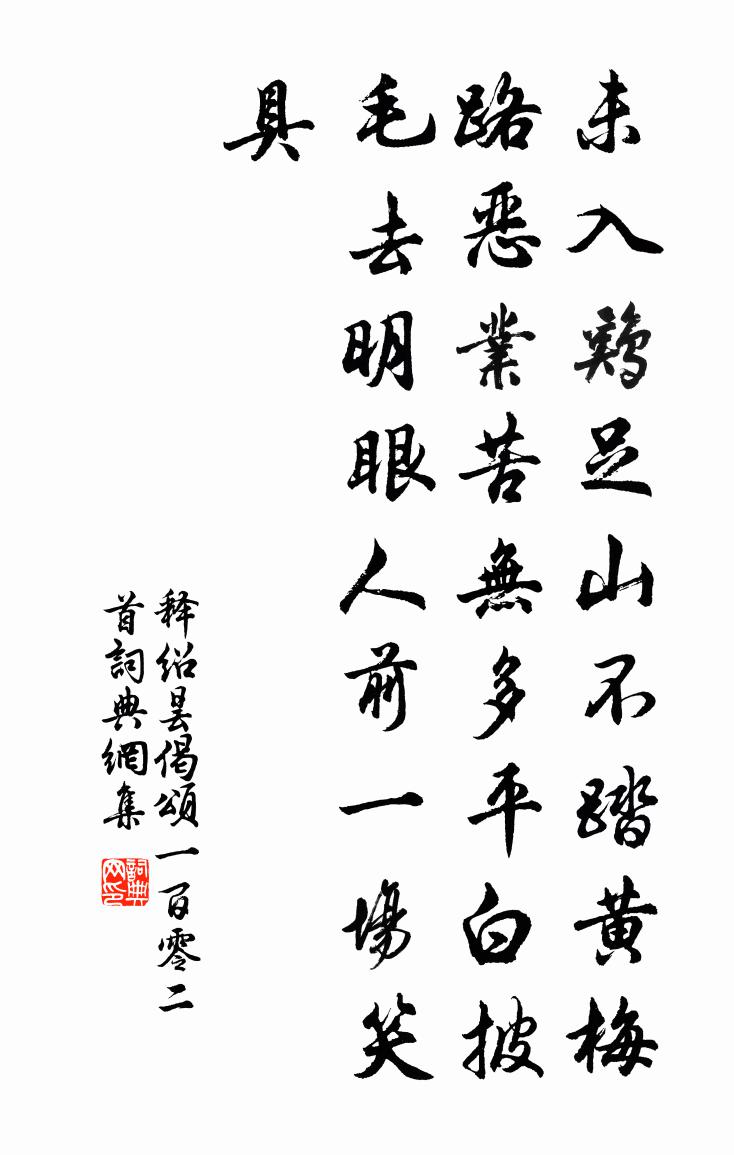 未入鷄足山不踏黄梅
路惡業苦無多平白披
毛去明眼人前一場笑
具
释绍昙偈頌一百零二
首詞典網集
詞典
网印